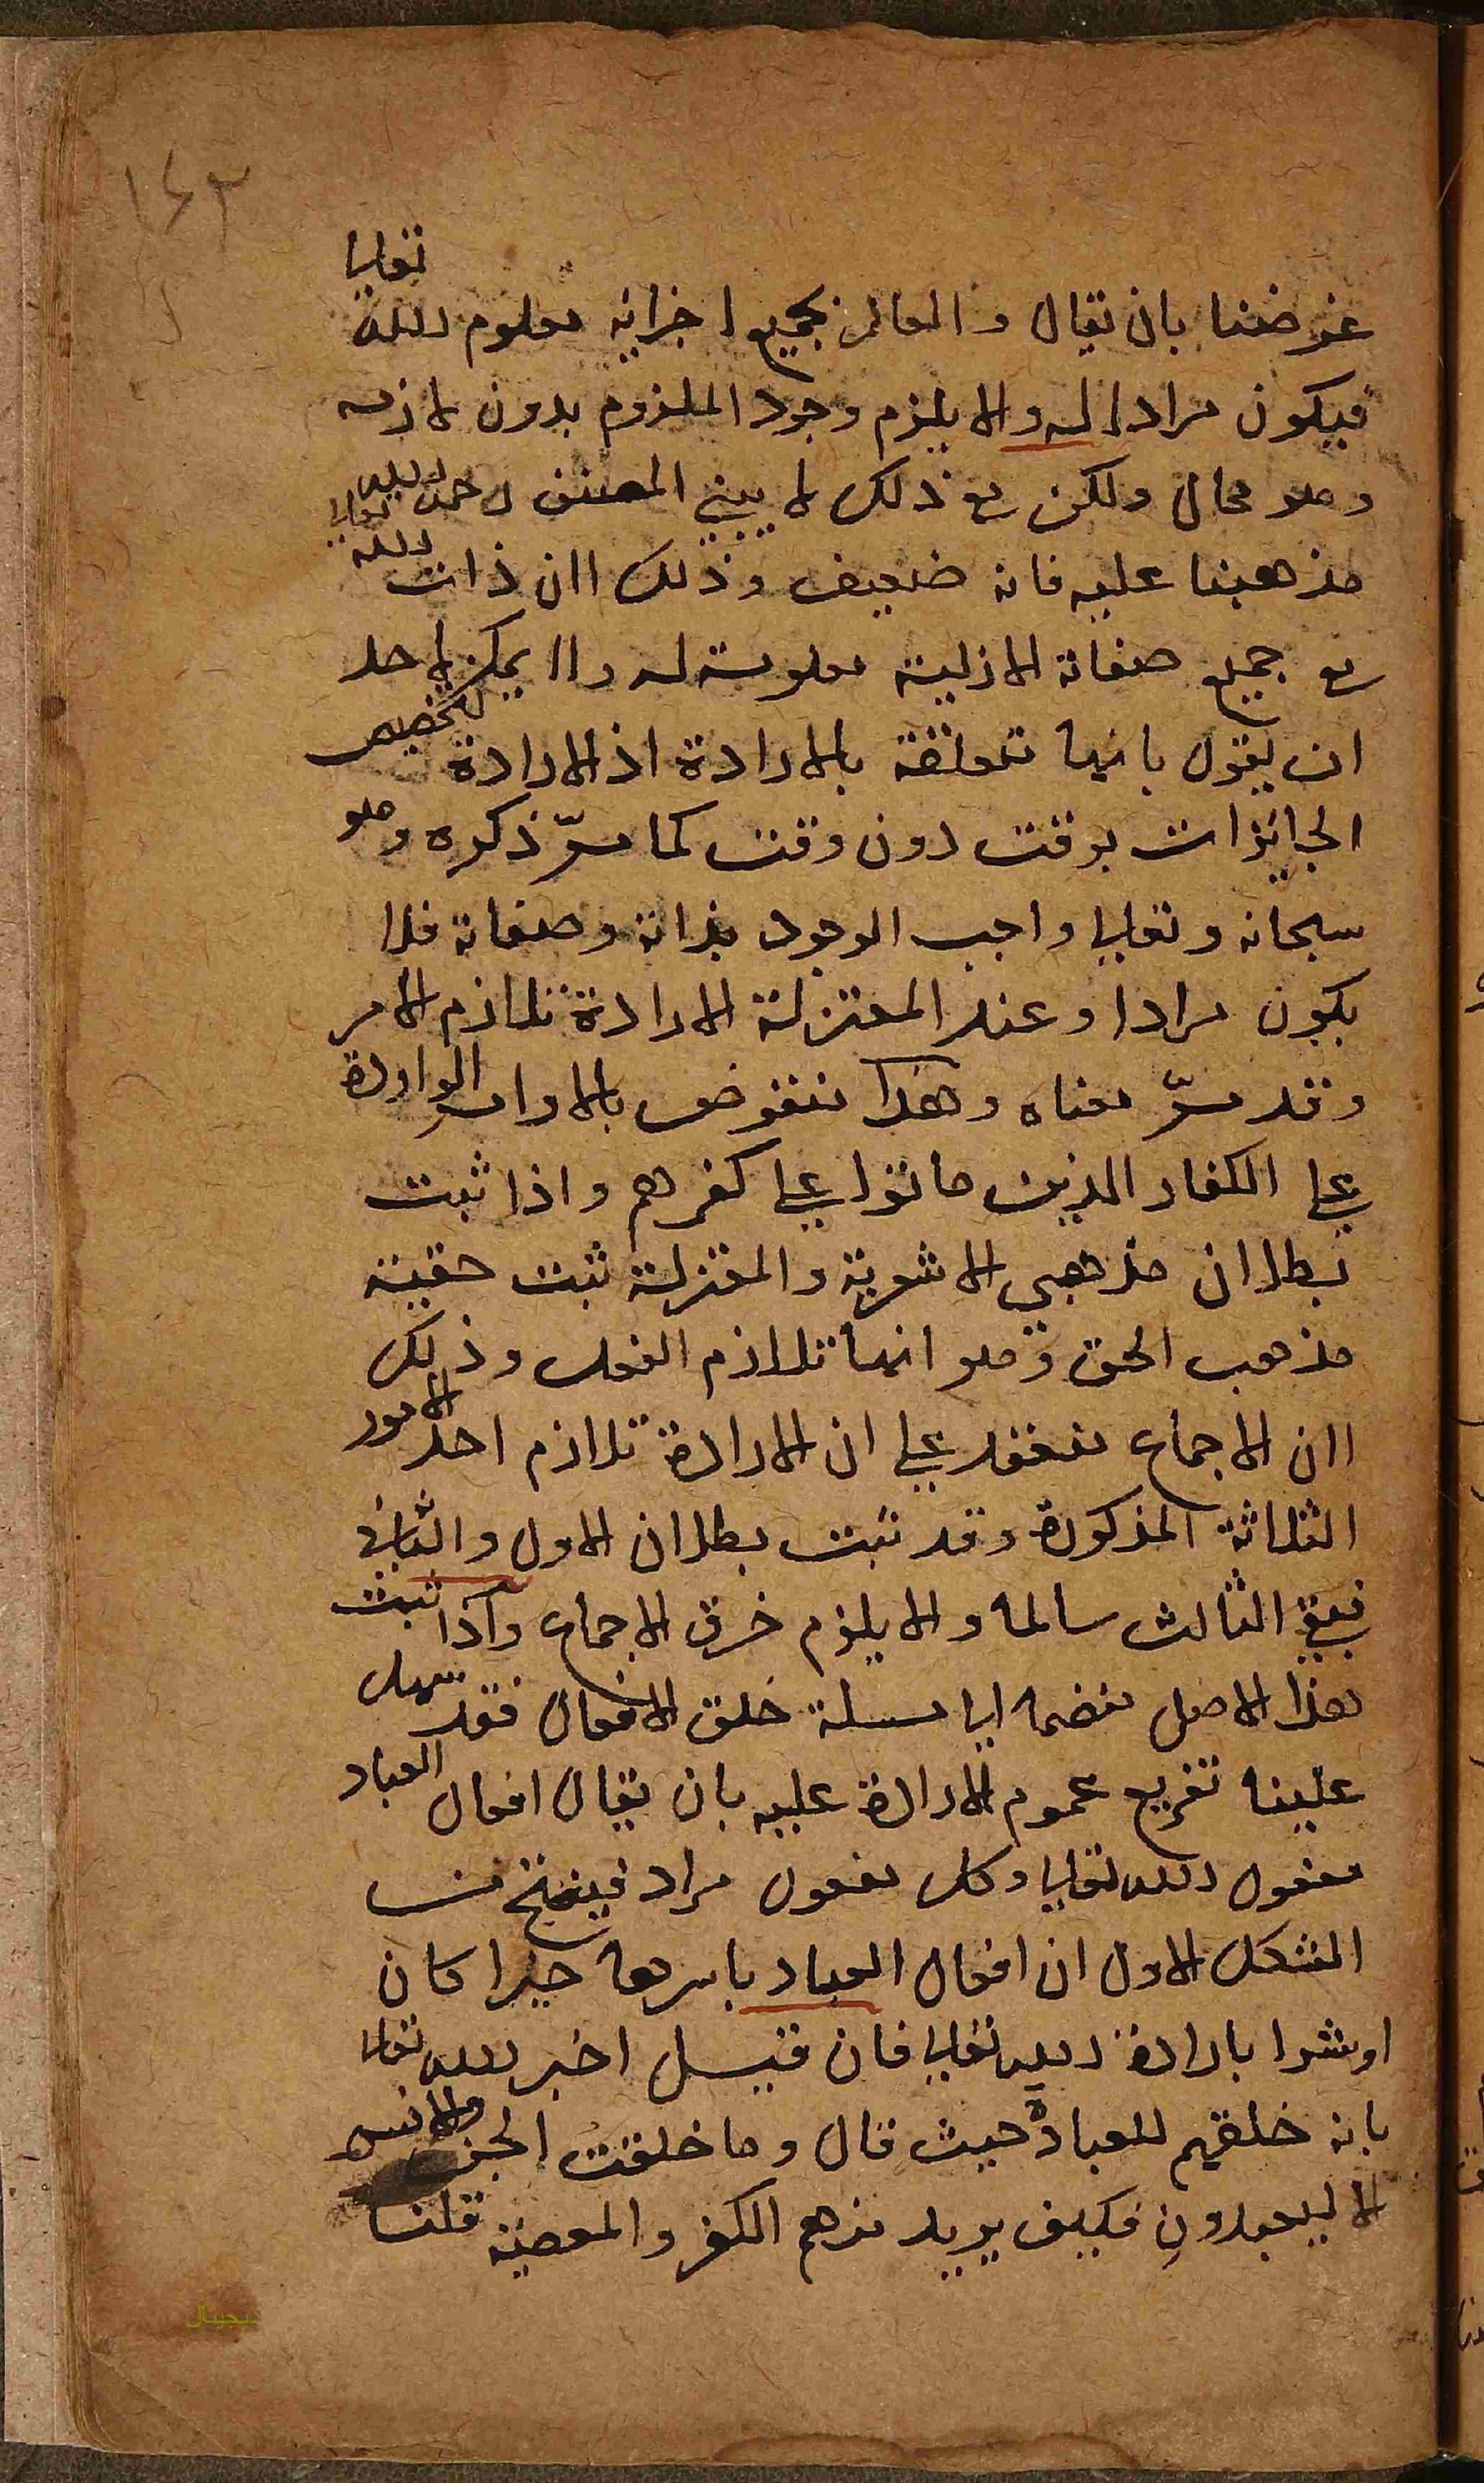 ١٤٣
غرضنا بان يقال والعالم بجميع اجزائه معلوم الله تعالى
فيكون مرادا له والا يلزم وجود الملزوم بدون لازمه
وهو محال ولكن مع ذلك لا يبني المصنف رحمه الله تعالى
مذهبنا عليه فانه ضعيف وذلك لان ذات الله
مع جميع صفاته الازلية معلومة له ولا يمكن لاحد
ان يقول بانها متعلقة بالارادة اذ الارادة لتخصيص
الجائزات بوقت دون وقت كما مرّ ذكره وهو
سبحانه وتعالى واجب الوجود بذاته وصفاته فلا
يكون مرادا وعند المعتزلة الارادة تلازم الامر
وقد مرّ معناه وهذا منقوض بالاوامر الواردة
على الكفار الذين ماتوا على كفرهم واذا ثبت
بطلان مذهبي الاشعرية والمعتزلة ثبت حقية
مذهب الحق وهو انها تلازم الفعل وذلك
لان الاجماع منعقد على ان الارادة تلازم احد الامور
الثلاثة المذكورة وقد ثبت بطلان الاول والثاني
فبقي الثالث سالما والا يلزم خرق الاجماع واذا ثبت
هذا الاصل منضما الى مسئلة خلق الافعال فقد سهل
علينا تفريع عموم الارادة عليه بان يقال افعال العباد
مفعول الله تعالى وكل مفعول مراد فينتج من
الشكل الاول ان افعال العباد باسرها خيرا كان
او شرا بارادة الله تعالى فان قيل اخبر الله تعالى
بانه خلقهم للعبادة حيث قال وما خلقت الجن والانس
الا ليعبدون فكيف يريد منهم الكفر والمعصية قلنا
ديجيتال